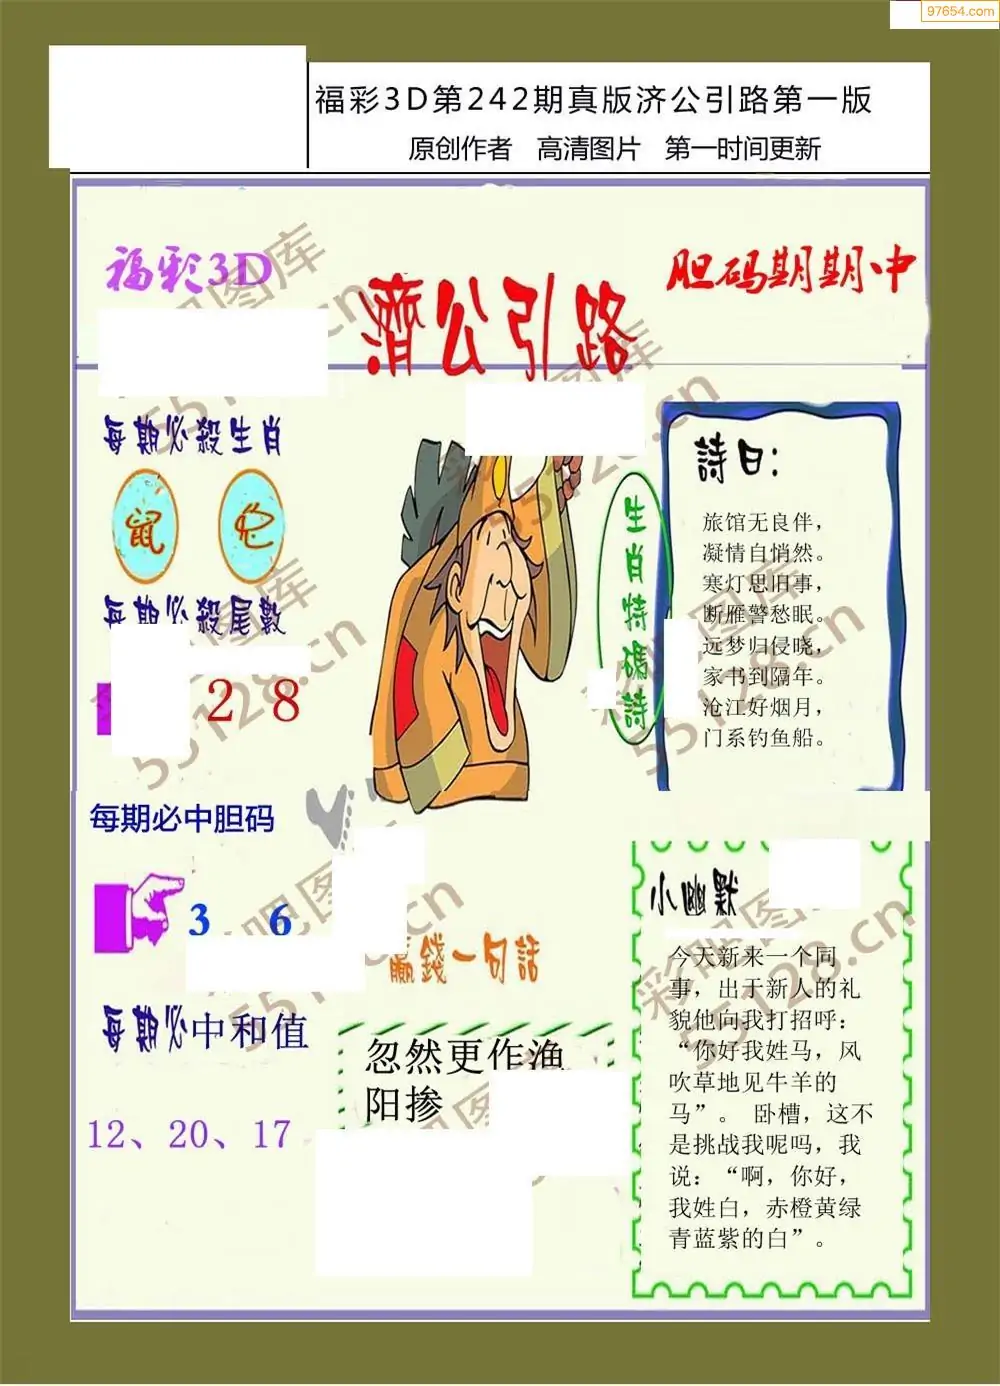 97654.com
福彩3D第242期真版济公引路第一版
原创作者 高清图片 第一时间更新
福彩3D
濟公引路
胆码期期中
每期必殺生肖
鼠
每期必殺尾數
2 8
每期必中胆码
3 6
每期必中和值
12、20、17
生肖特碼詩
詩曰:
旅馆无良伴，
凝情自悄然。
寒灯思旧事，
断雁警愁眠。
远梦归侵晓，
家书到隔年。
沧江好烟月，
门系钓鱼船。
贏錢一句話
忽然更作渔
阳掺
小幽默
今天新来一个同
事，出于新人的礼
貌他向我打招呼：
“你好我姓马，风
吹草地见牛羊的
马”。 卧槽，这不
是挑战我呢吗，我
说：“啊，你好，
我姓白，赤橙黄绿
青蓝紫的白”。
彩吧图库
55128.cn